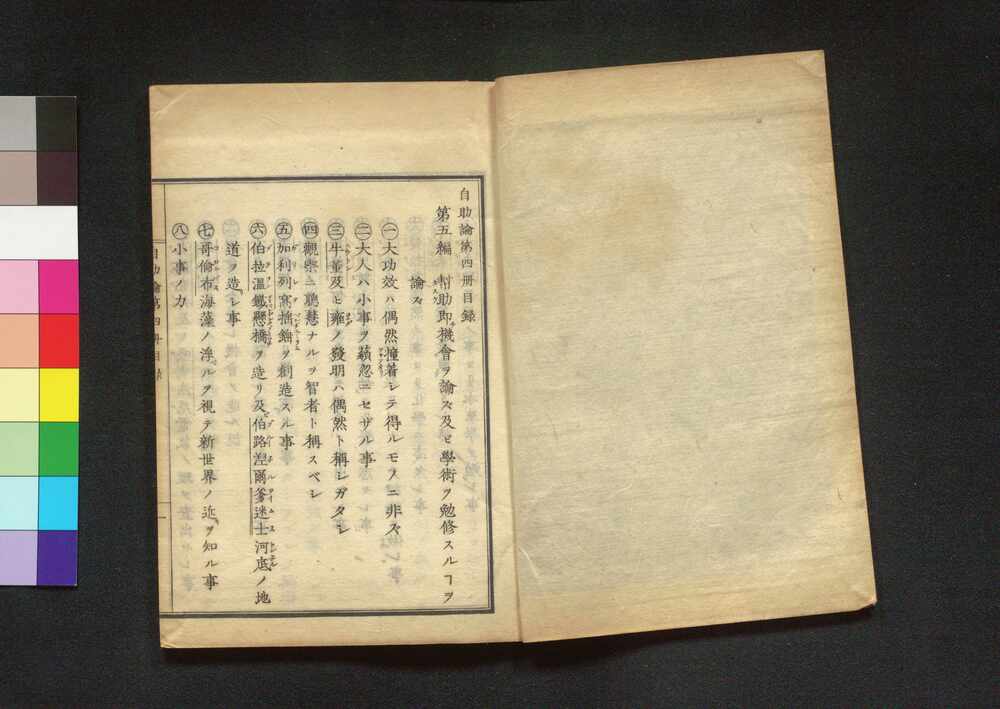 自助論第四冊目録
第五編　幇助即機會ヲ論ズ及ヒ學術ヲ勉修スルヿヲ
論ズ
㊀大功效ハ偶然撞着シテ得ルモノニ非ズ
㊁大人ハ小事ヲ藐忽ニセザル事
㊂牛董及ヒ雍ノ發明ハ偶然ト稱シガタシ
㊃觀察ニ聰慧ナルヲ智者ト稱スベシ
㊄加利列窩揺錘ヲ創造スル事
㊅伯拉温鐵懸橋ヲ造リ及伯路涅爾爹迷士河底ノ地
道ヲ造シ事
㊆哥倫布海藻ノ浮ルヲ視テ新世界ノ近ヲ知ル事
㊇小事ノ力
自助論第四冊目録
一